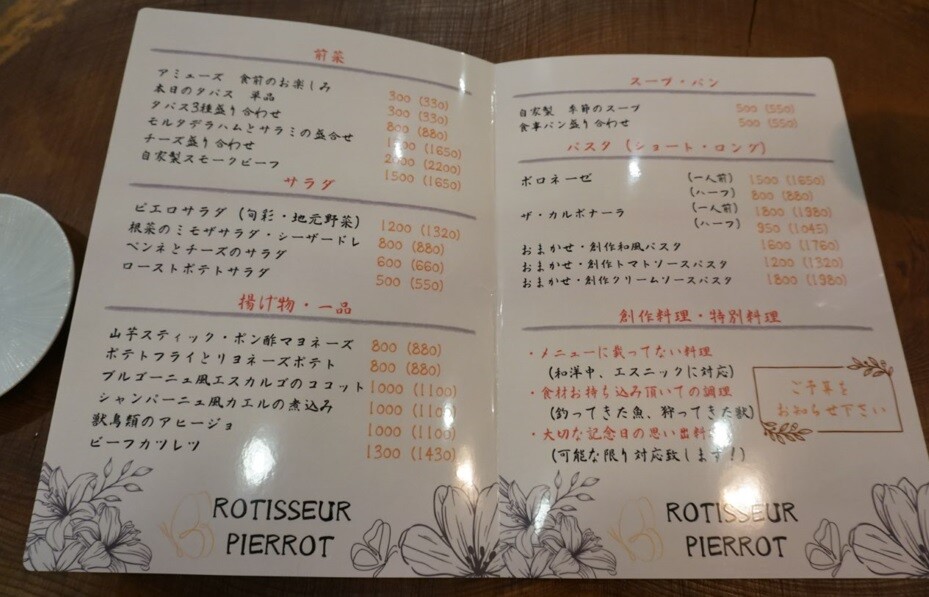 前菜
アミューズ 食前のお楽しみ 300 (330)
本日のタパス 単品 300 (330)
タパス3種盛り合わせ 800 (880)
モルタデラハムとサラミの盛合せ (1650)
チーズ盛り合わせ 2000 (2200)
自家製スモークビーフ 1500 (1650)
サラダ
ピエロサラダ (旬彩・地元野菜) 1200 (1320)
根菜のミモザサラダ・シーザードレ 800 (880)
ペンネとチーズのサラダ 600 (660)
ローストポテトサラダ 500 (550)
揚げ物・一品
山芋スティック・ポン酢マヨネーズ 800 (880)
ポテトフライとリヨネーズポテト 800 (880)
ブルゴーニュ風エスカルゴのココット 1000 (1100)
シャンパーニュ風カエルの煮込み 1000 (1100)
獣鳥類のアヒージョ 1000 (1100)
ビーフカツレツ 1300 (1430)
ROTISSEUR
PIERROT
スープ・パン
自家製 季節のスープ 500 (550)
食事パン盛り合わせ 500 (550)
パスタ (ショート・ロング)
ボロネーゼ (一人前) 1500 (1650)
(ハーフ) 800 (880)
ザ・カルボナーラ (一人前) 1800 (1980)
(ハーフ) 950 (1045)
おまかせ・創作和風パスタ 1600 (1760)
おまかせ・創作トマトソースパスタ 1200 (1320)
おまかせ・創作クリームソースパスタ 1800 (1980)
創作料理・特別料理
・メニューに載ってない料理
(和洋中、エスニックに対応)
・食材お持ち込み頂いての調理
(釣ってきた魚、狩ってきた獣)
・大切な記念日の思い出料
(可能な限り対応致します!)
ご予算を
お知らせ下さい
ROTISSEUR
PIERROT